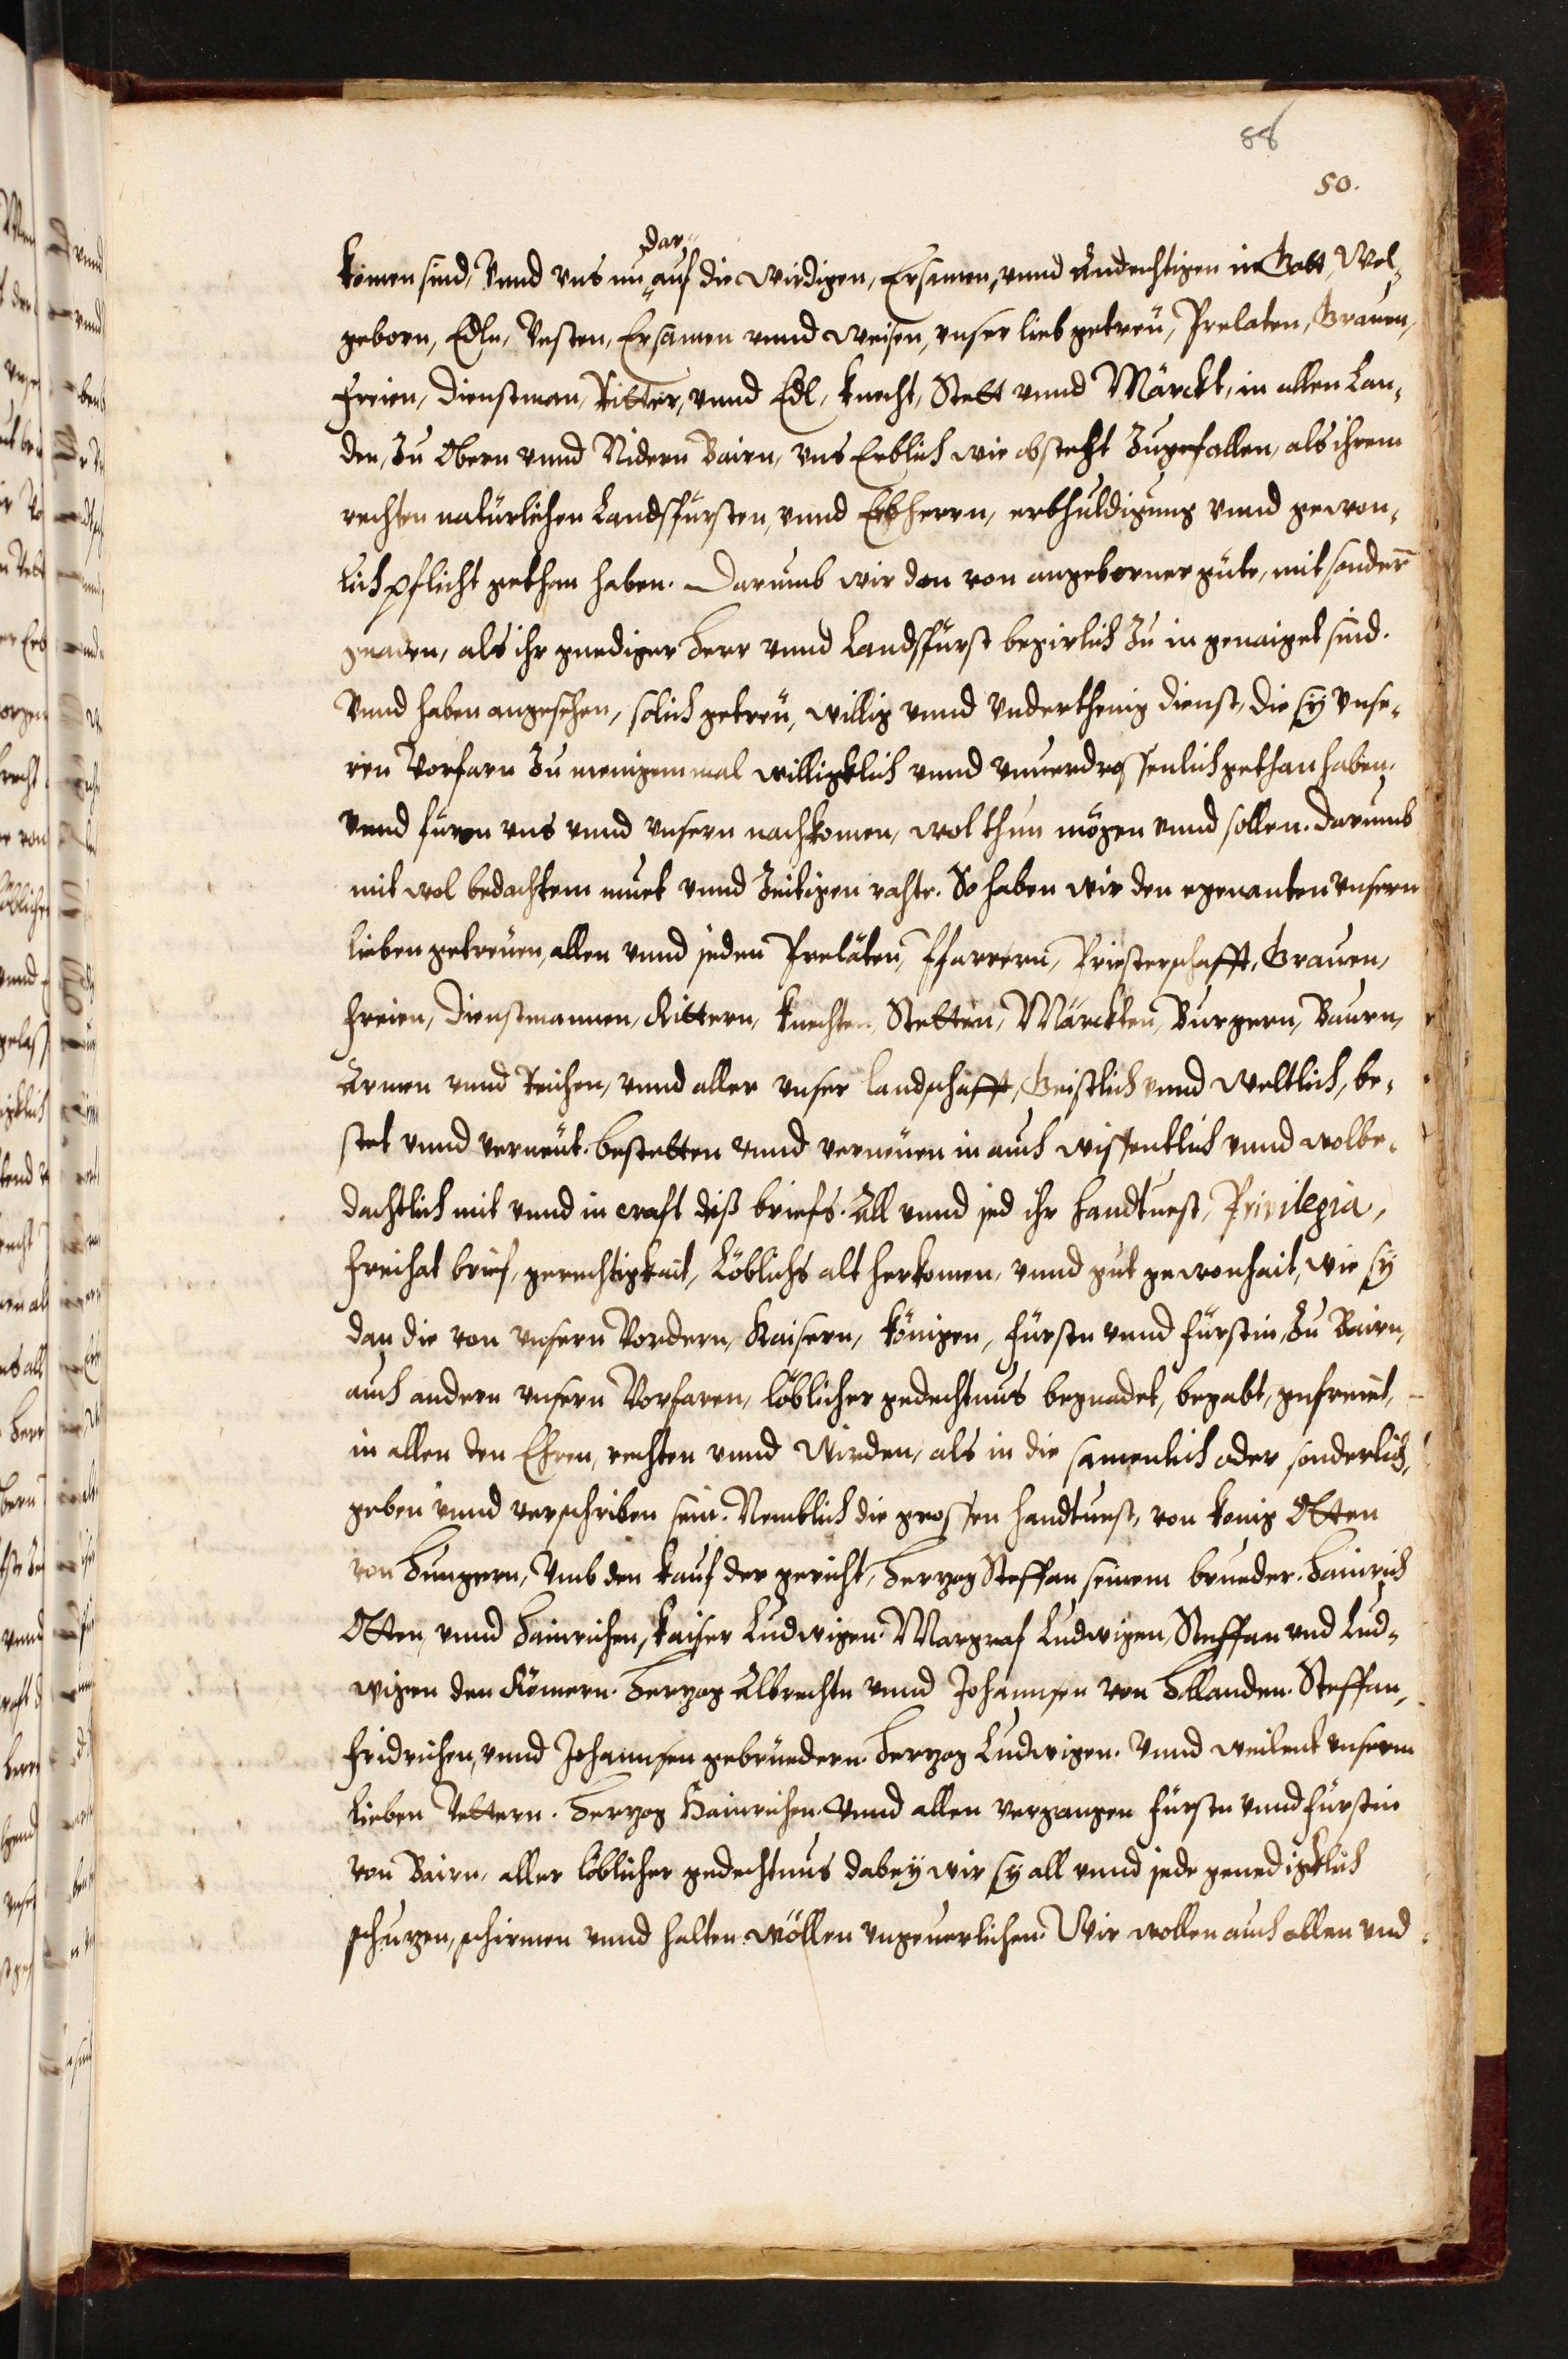 88
50.
dar¬
komen sind, Vnnd vns nu auf die wirdigen, Ersamen, vnnd Andechtigen in Gott, Wol¬
geborn, Edln, Vesten, Ersamen vnnd weisen, vnser lieb getreü, Prelaten, Grauen,
Freien, dienstman, Ritter, vnnd Edl, knecht, Stett vnnd Märckt, in allen Lan¬
den, Zu Obern vnnd Nidern Bairn, vns Erblich wie obsteht Zugefallen, als ihrem
rechten natürlichen Landsfürsten, vnnd Erbherrn, erbhuldigung vnnd gewon¬
lich pflicht gethan haben. Darumb wir dan von angeborner güte, mit sondern̄
gnaden, als ihr gnediger Herr vnnd Landsfürst begirlich Zu in genaiget sind.
Vnnd haben angesehen, solich getreü, willig vnnd Vnderthenig dienst, die sy Vnse¬
ren Vorfarn Zu menigem mal willigklich vnnd vnuerdrossenlich gethan haben.
Vnnd füron vns vnnd vnsern nachkomen, wol thun mögen vnnd sollen. darumb
mit wol bedachtem muet vnnd Zeitigen rahte. So haben wir den egenanten vnsern
lieben getreüen, allen vnnd jeden Prelaten, Pfarrern, Priesterschafft, Grauen,
Freien, Dienstmannen, Rittern, knechten, Stetten, Märckten, Burgern, Baurn,
Armen vnnd Reichen, vnnd aller vnser landschafft, Geistlich vnnd weltlich, be¬
stet vnnd verneüt. bestetten vnnd verneüen in auch wissentlich vnnd wolbe¬
dachtlich mit vnnd in craft diß briefs. All vnnd jed ihr handtuest, Privilegia,
freihat brief, gerechtigkait, Löblichs alt herkomen, vnnd gut gewonhait, wie sy
dan die von vnsern Vordern, Kaisern, königen, fürstn vnnd fürstin, Zu Bairn,
auch andern vnsern Vorfaren, löblicher gedechtnus begnadet, begabt, gefreiet,
in allen den Ehren, rechten vnnd wirden, als in die samenlich oder sonderlich,
geben vnnd verschriben sein. Nemblich die grossen handtuest, von konig Otten
von Hungern, Vmb den kauf der gericht, Herzog Steffan seinem brueder. Hainrich
Otten, vnnd Hainrichen, kaiser Ludwigen. Margraf Ludwigen, Steffan vnd Lud¬
wigen den Römern. Herzog Albrechtn vnnd Johannsen von Hollanden. Steffan,
Fridrichen, vnnd Johannsen gebrüedern. Herzog Ludwigen. Vnnd weilent vnserm
lieben Vettern. Herzog Hainrichen Vnnd allen vergangen fürstn vnnd fürstin
von Bairn, aller löblicher gedechtnus dabey wir sy all vnnd jede genedigklich
schuzen, schirmen vnnd halten wöllen vngeuerlichen. Wir wollen auch allen vnd